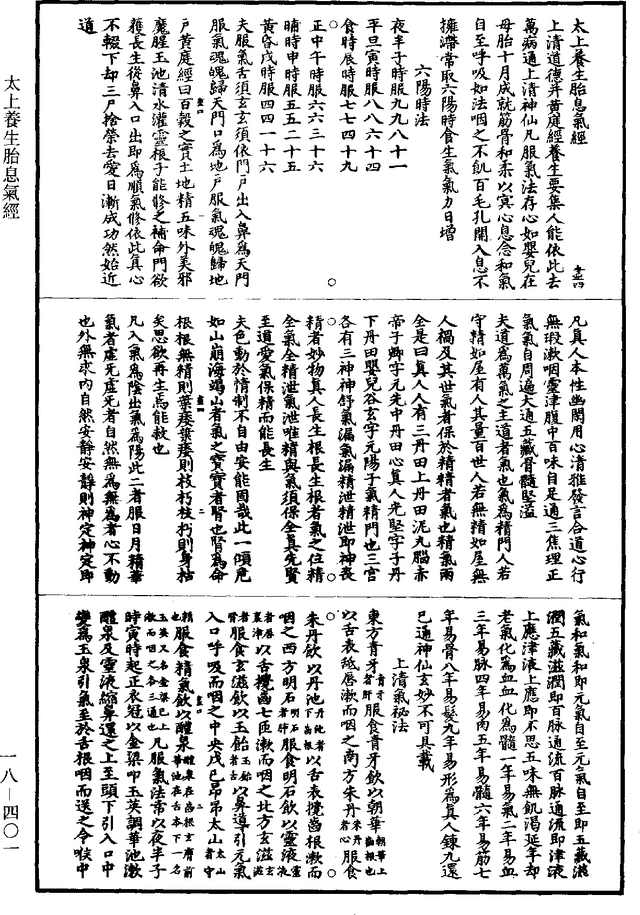 太上養生胎息氣經
上清道德并黃庭經養生要集人能依此去
萬病通上清神仙凡服氣法存心如嬰兒在
母胎十月成就筋骨和柔以冥心息念和氣
自至呼吸如法咽之不飢百毛孔開入息不
擁滯常取六陽時食生氣氣力日增
六陽時法
夜半子時服九九八十一
平旦寅時服八八六十四
食時辰時服七七四十九
正中午時服六六三十六
晡時申時服五五二十五
黃昏戌時服四四一十六
夫服氣舌須玄玄須依門戶出入鼻為天門
服氣魂魄歸天門口為地戶服氣魂魄歸地
戶黃庭經曰百穀之實土地精五味外美邪
魔腥玉池清水灌靈根子能修之補命門欲
獲長生從鼻入口出即為順氣修依此真心
不輟下却三尸搶榮去憂日漸成功然始近
道
凡真人本性幽閑用心清雅發言合道心行
無瑕漱咽靈津腹中百味自足通三焦理正
氣氣自周遍大通五藏骨髓堅溢
夫道為萬氣之主道者氣也氣為精門人若
守精如屋有人其量百世人若無精如屋無
人禍及其世氣者保於精精者氣也精氣兩
全是曰真人人有三丹田上丹田泥丸腦赤
帝子卿字元先中丹田心真人光堅字子丹
下丹田嬰兒谷玄字元陽子氣精門也三宮
各有三神神舒氣漏氣漏精泄精泄即神喪
精者妙物真人長生根長生根者氣之位精
全氣全精泄氣泄唯精與氣須保全真先賢
至道愛氣保精而能長生
夫色動於情制不自由安能固哉此一傾危
如山崩海竭山者氣之寳寳者腎也腎為命
根根無精則葉痿葉痿則枝朽枝朽則身枯
矣思欲再生焉能救也
凡入氣為陰出氣為陽此二者服日月精華
氣者虛死虛死者自然無為無為者心不動
也外無求內自然安靜安靜則神定神定即
氣和氣和即元氣自至元氣自至即五藏滋
潤五藏滋潤即百脉通流百脉通流即津液
上應津液上應即不思五味無飢渴延年却
老氣化為血血化為髓一年易氣二年易血
三年易脉四年易肉五年易髓六年易筋七
年易骨八年易髮九年易形為真人鍊九還
已通神仙玄妙不可具載
上清氣祕法
東方青牙青牙者肝服食青牙飲以朝華朝華上齒根也
以舌表舐唇漱而咽之南方朱丹朱丹者心服食
朱丹飲以丹池丹池者下齒根以舌表攪齒根漱而
咽之西方明石明石者肺服食明石飲以靈液靈液者唇裏津以舌攪齒七匝漱而咽之北方玄滋玄滋者腎服食玄滋飲以玉飴玉飴者舌以鼻導引元氣
入口呼吸而咽之中央戊己昂昂太山太山者守精服食精氣飲以醴泉
凡服氣法常以夜半子
時寅時起正衣冠以金梁叩玉英調華池漱
醴泉及靈液縮鼻還之上至頭下引入口中
變為玉泉引氣至於舌根咽而送之令喉中
太上養生胎息氣經
一八—四〇一